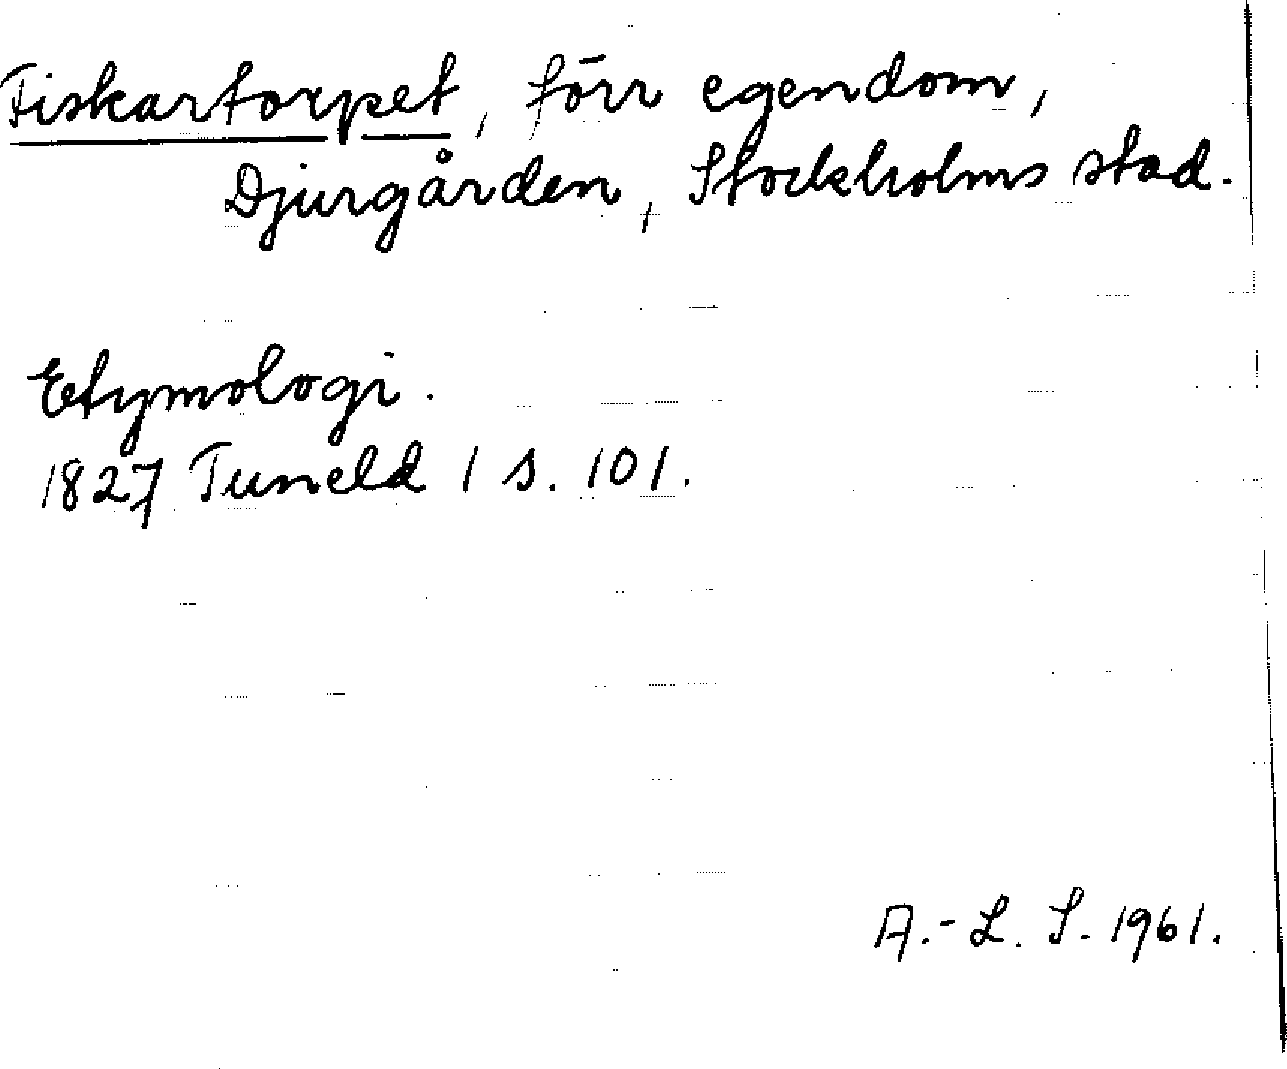 Fiskartorpet, förr egendom,
Djurgården, Stockholms stad.
Etymologi.
1827 Tuneld 1 s. 101.
A.-L. S. 1961.